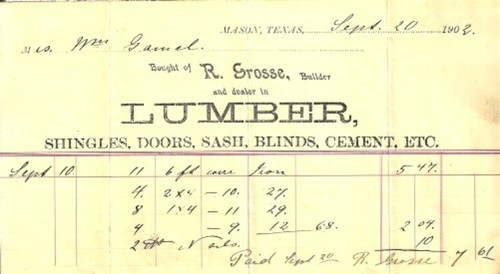 MASON, TEXAS, Sept. 20 1902.
M is. Wm Gamel.
Bought of R. Grosse, Builder
and dealer in
LUMBER,
SHINGLES, DOORS, SASH, BLINDS, CEMENT, ETC.
Sept 10 11 6 ft Iron 5 47.
4. 2x4 — 10. 27.
8 1x4 — 11 29.
4 — 9. 12 68. 2 04.
2 Nails. 10
Paid Sept 20 R. Grosse 7 61